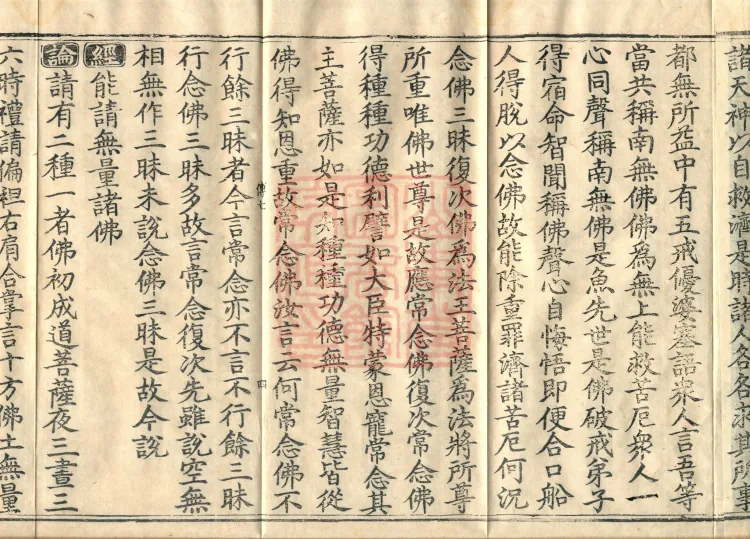 諸天神以自救濟是時諸人各各求其所事
都無所益中有五戒優婆塞語衆人言吾等
當共稱南無佛佛爲無上能救苦厄衆人一
心同聲稱南無佛是魚先世是佛破戒弟子
得宿命智聞稱佛聲心自悔悟即便合口船
人得脫以念佛故能除重罪濟諸苦厄何況
念佛三昧復次佛爲法王菩薩爲法將所尊
所重唯佛世尊是故應常念佛復次常念佛
得種種功德利譬如大臣特蒙恩寵常念其
主菩薩亦如是知種種功德無量智慧皆從
佛得知恩重故常念佛汝言云何常念佛不
四
行餘三昧者今言常念亦不言不行餘三昧
行念佛三昧多故言常念復次先雖說空無
相無作三昧未說念佛三昧是故今說
經能請無量諸佛
論請有二種一者佛初成道菩薩夜三晝三
六時禮請偏袒右肩合掌言十方佛土無量